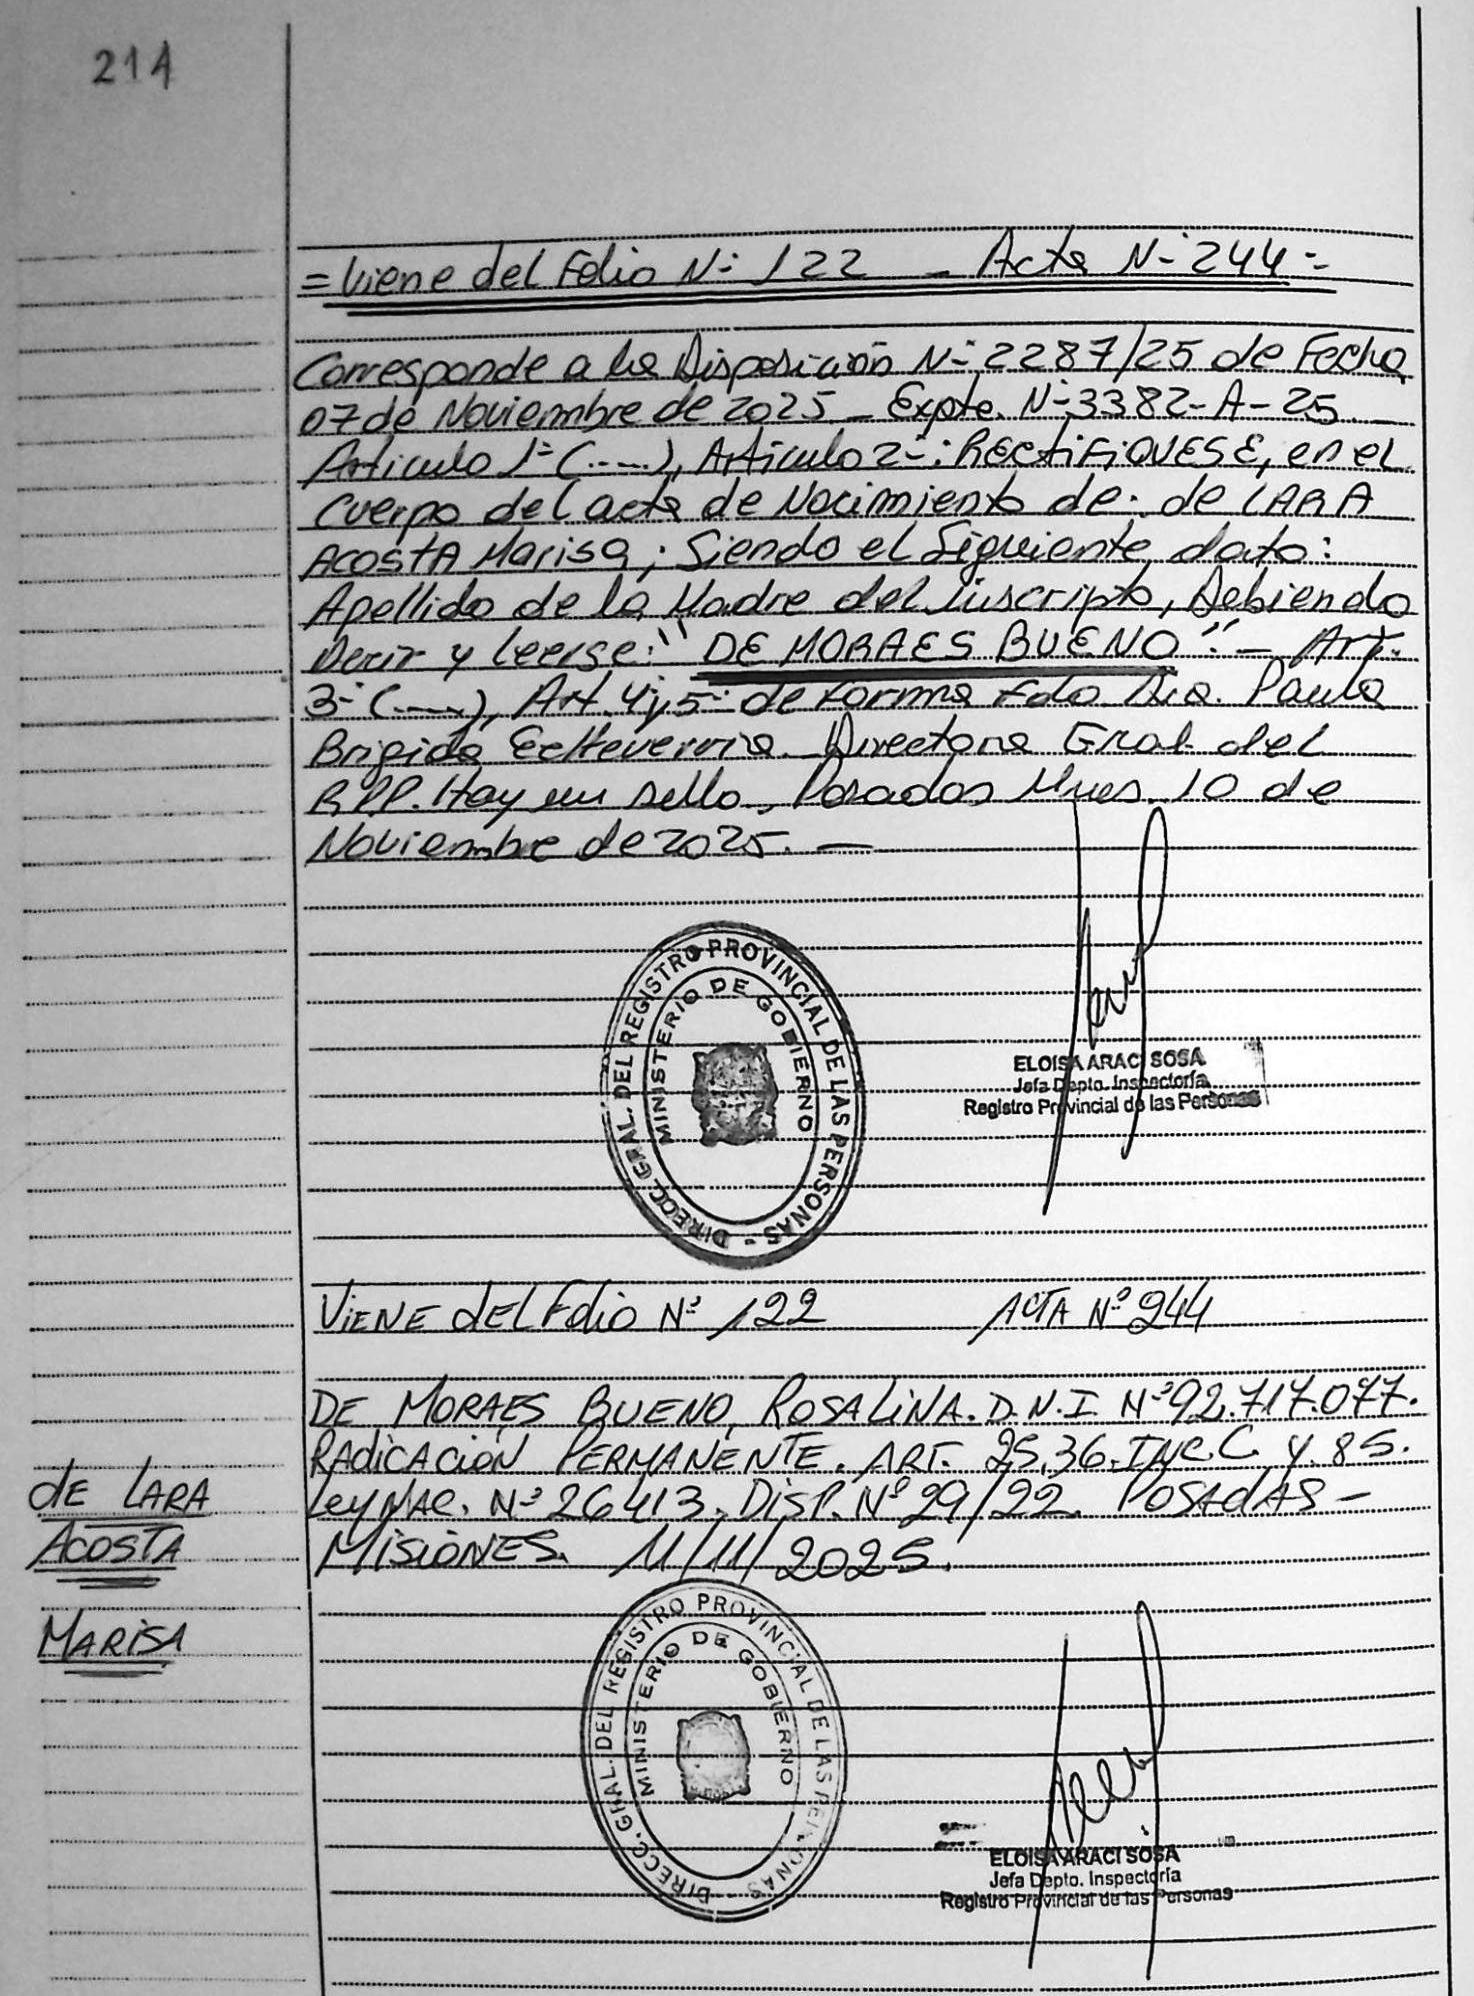 214
= Viene del Folio Nº 122 _ Acta Nº 244 =
Corresponde a la Disposición Nº 2287/25 de Fecha
07 de Noviembre de 2025 _ Expte. Nº 3382-A-25.
Artículo 1º (.....), Artículo 2º: RECTIFIQUESE, en el
Cuerpo del acta de Nacimiento de: de LARA
ACOSTA Marisa; Siendo el Siguiente dato:
Apellido de la Madre del Inscripto, Debiendo
Decir y Leerse: "DE MORAES BUENO". _ Art.
3º (.....), Art. 4º y 5º de Forma Fdo. Dra. Paula
Brigida Echeverria. Directora Gral. del
R.P.P. Hay un sello, Posadas Mnes. 10 de
Noviembre de 2025. —
DIRECC. GRAL. DEL REGISTRO PROVINCIAL DE LAS PERSONAS -
MINISTERIO DE GOBIERNO
ELOISA ARACI SOSA
Jefa Depto. Inspectoría
Registro Provincial de las Personas
VIENE dEL Folio Nº 122 ACTA Nº 244
DE MORAES BUENO, ROSALiNA. D.N.I Nº 92.717.077.
RAdiCACióN PERMANENTE. ART. 25, 36. INC. C. Y 85.
Ley NAC. Nº 26413. DiSP. Nº 29/22. POSAdAS -
MiSiONES. 11/11/2025.
dE LARA
ACOSTA
MARiSA
DIRECC. GRAL. DEL REGISTRO PROVINCIAL DE LAS PERSONAS -
MINISTERIO DE GOBIERNO
ELOISA ARACI SOSA
Jefa Depto. Inspectoría
Registro Provincial de las Personas